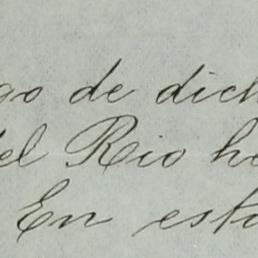 go de dich
del Rio he
En esta